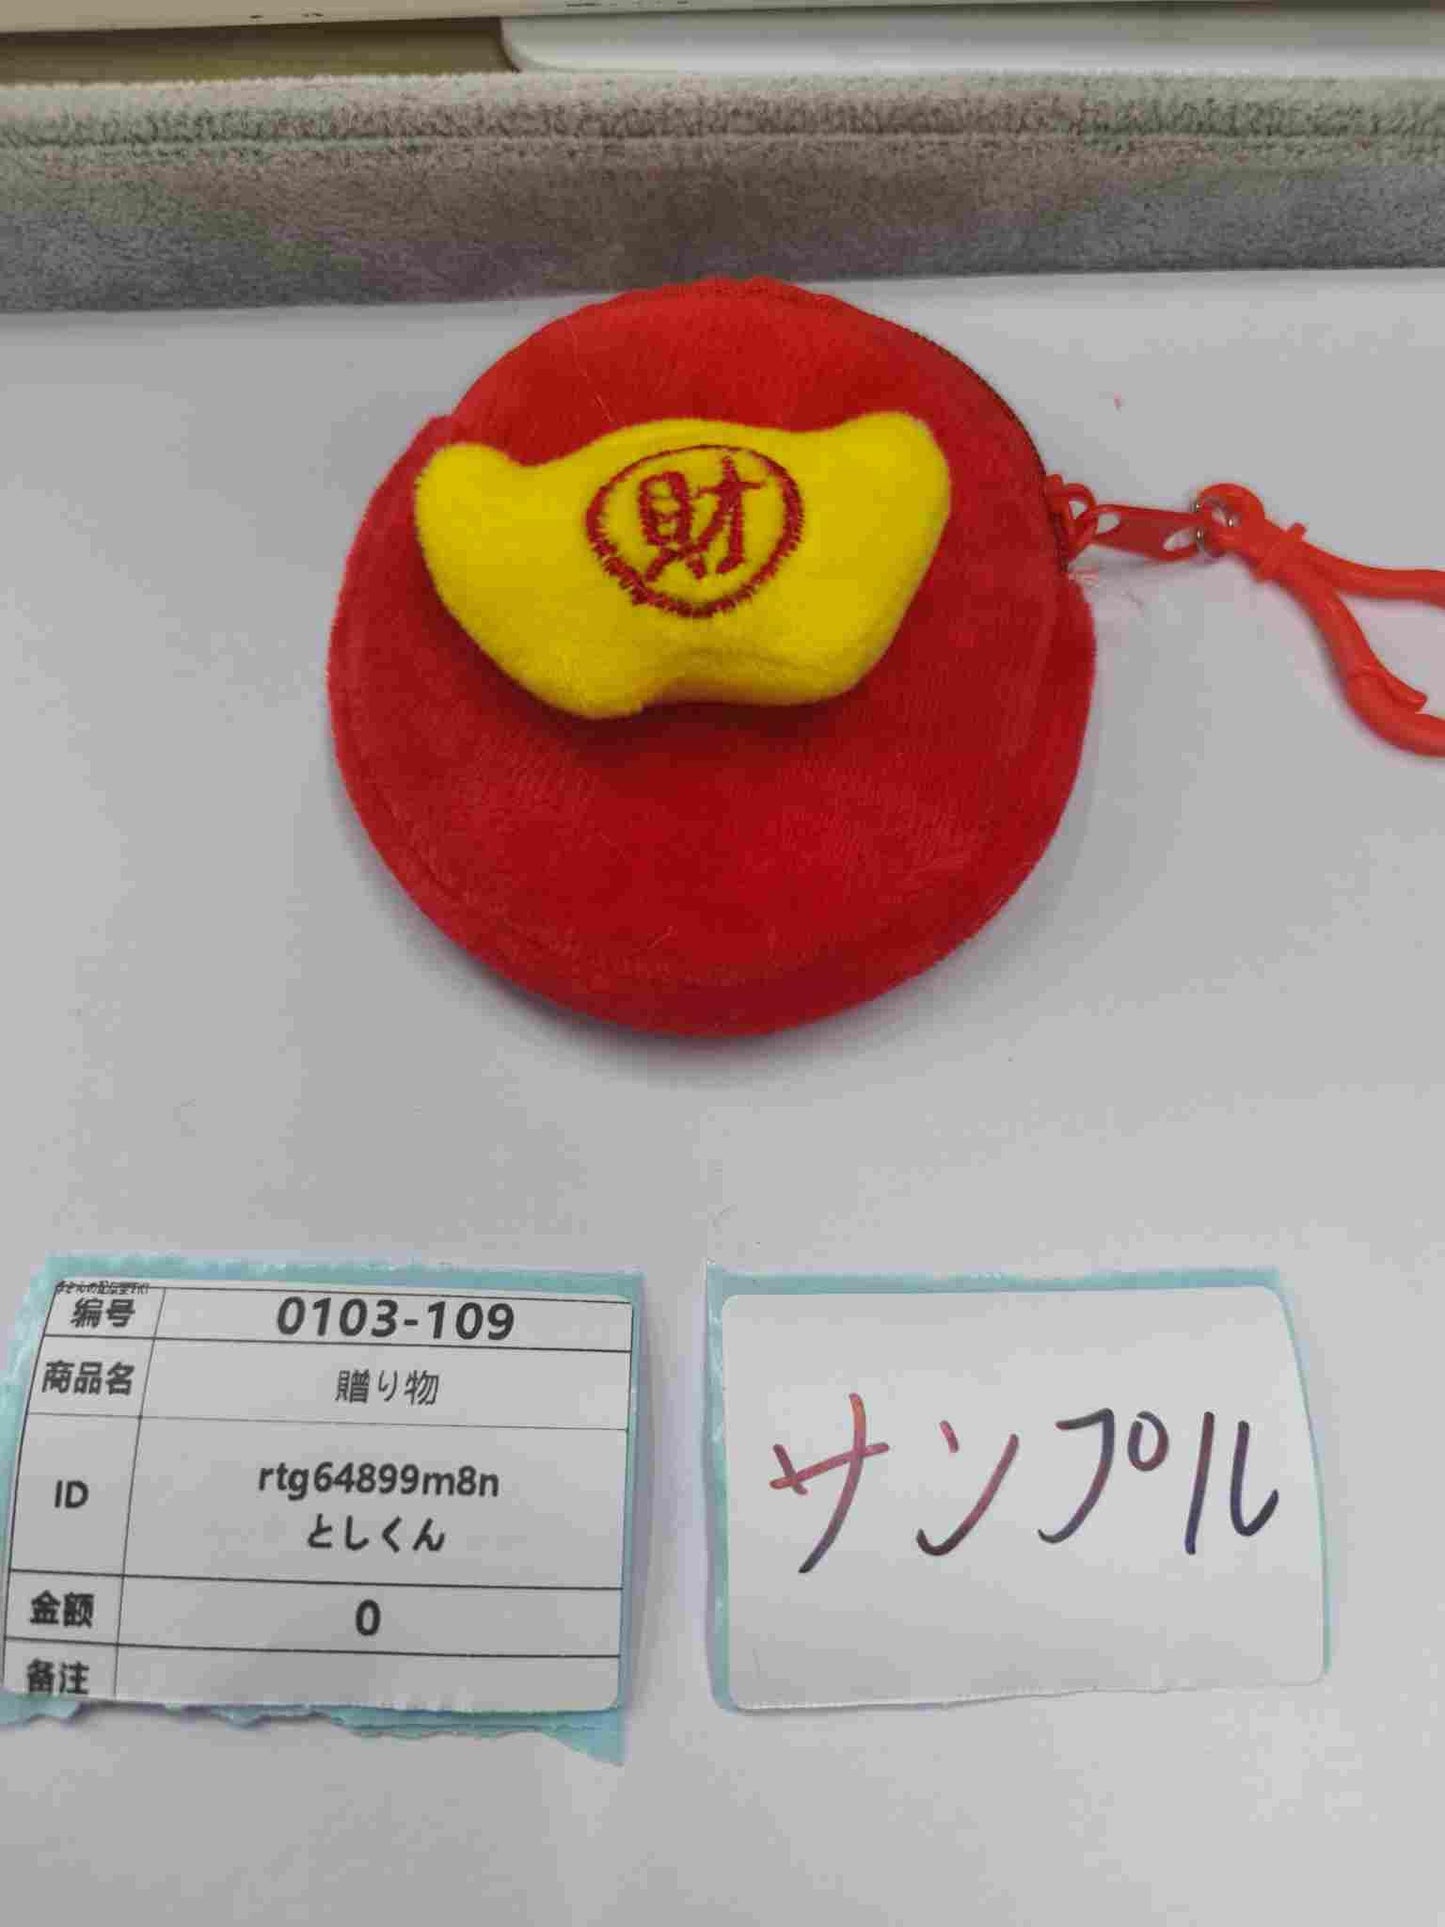 財
编号 0103-109
商品名 贈り物
ID rtg64899m8n
としくん
金额 0
备注
サンプル